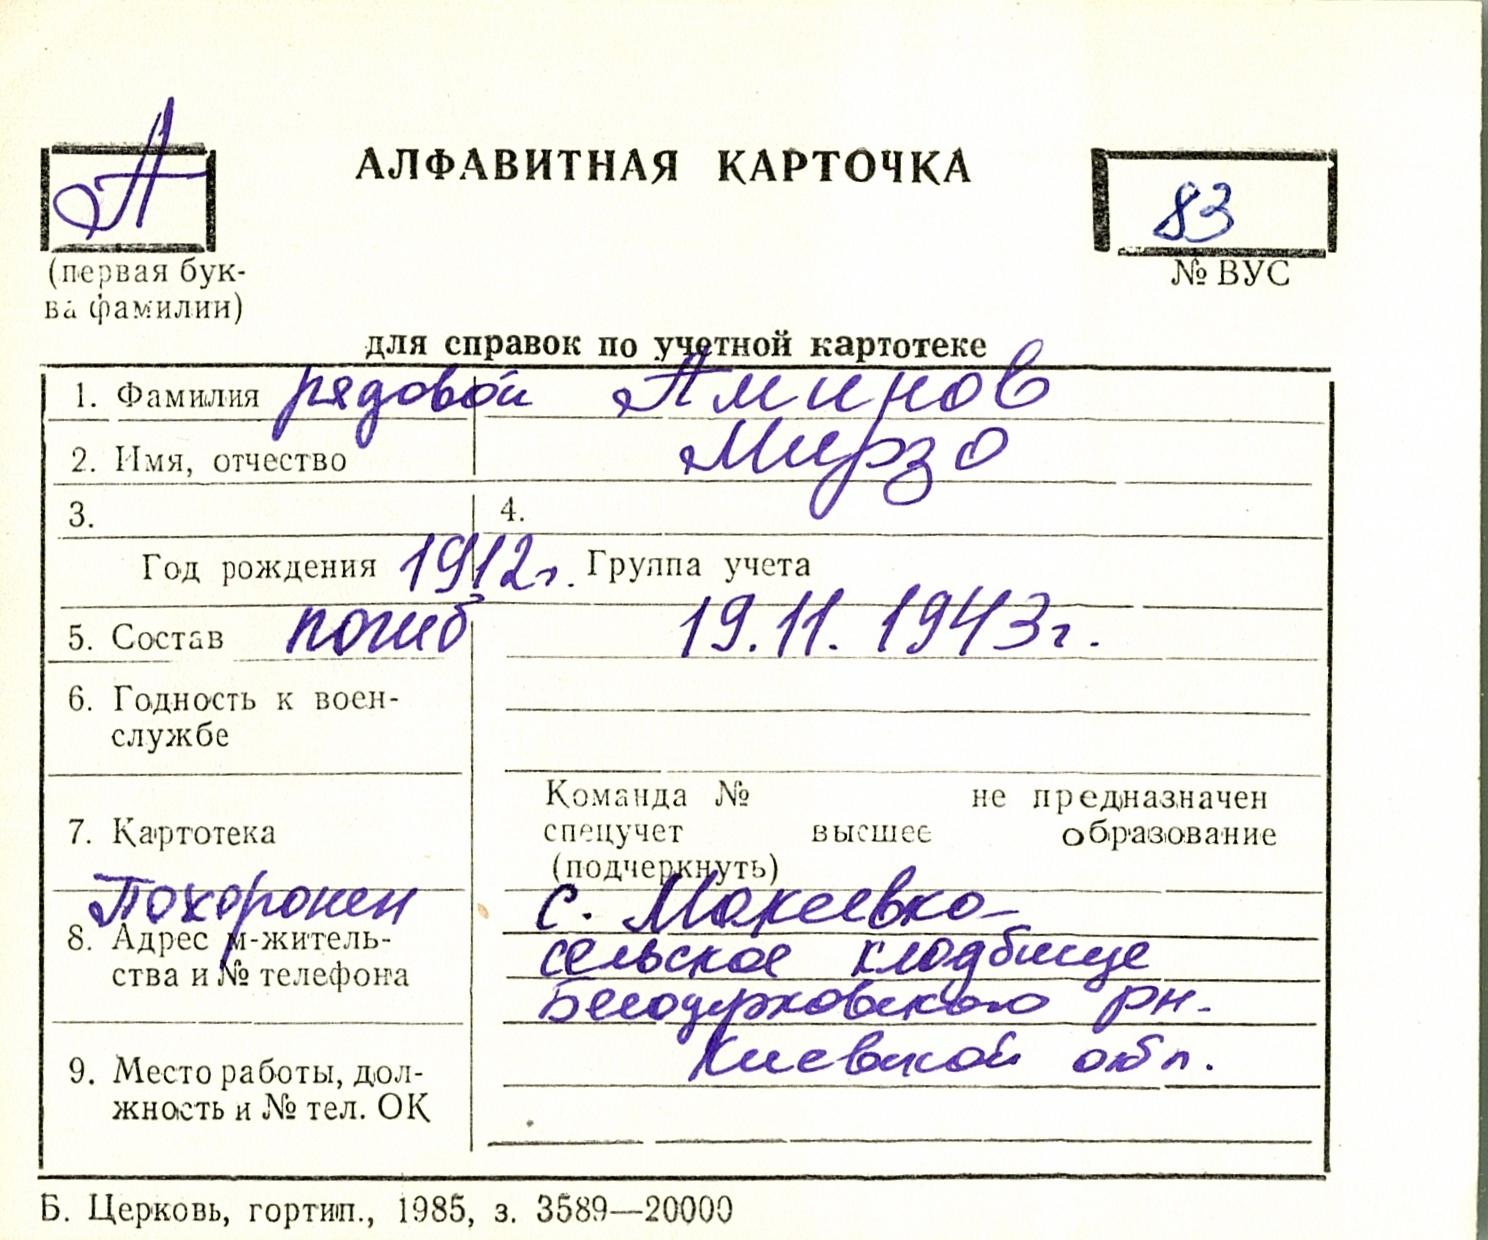 А
АЛФАВИТНАЯ КАРТОЧКА
83
(первая бук-
ва фамилии)
№ ВУС
для справок по учетной картотеке
1. Фамилия рядовой Аминов
2. Имя, отчество Мирзо
3. 4.
Год рождения 1912г. Группа учета
5. Состав погиб 19.11.1943г.
6. Годность к воен-
службе
Команда № не предназначен
7. Картотека спецучет высшее образование
(подчеркнуть)
Похоронен с. Макеевка-
8. Адрес м-житель- сельское кладбище
ства и № телефона Белоцерковского рн.
Киевской обл.
9. Место работы, дол-
жность и № тел. ОК
Б. Церковь, гортип., 1985, з. 3589—20000